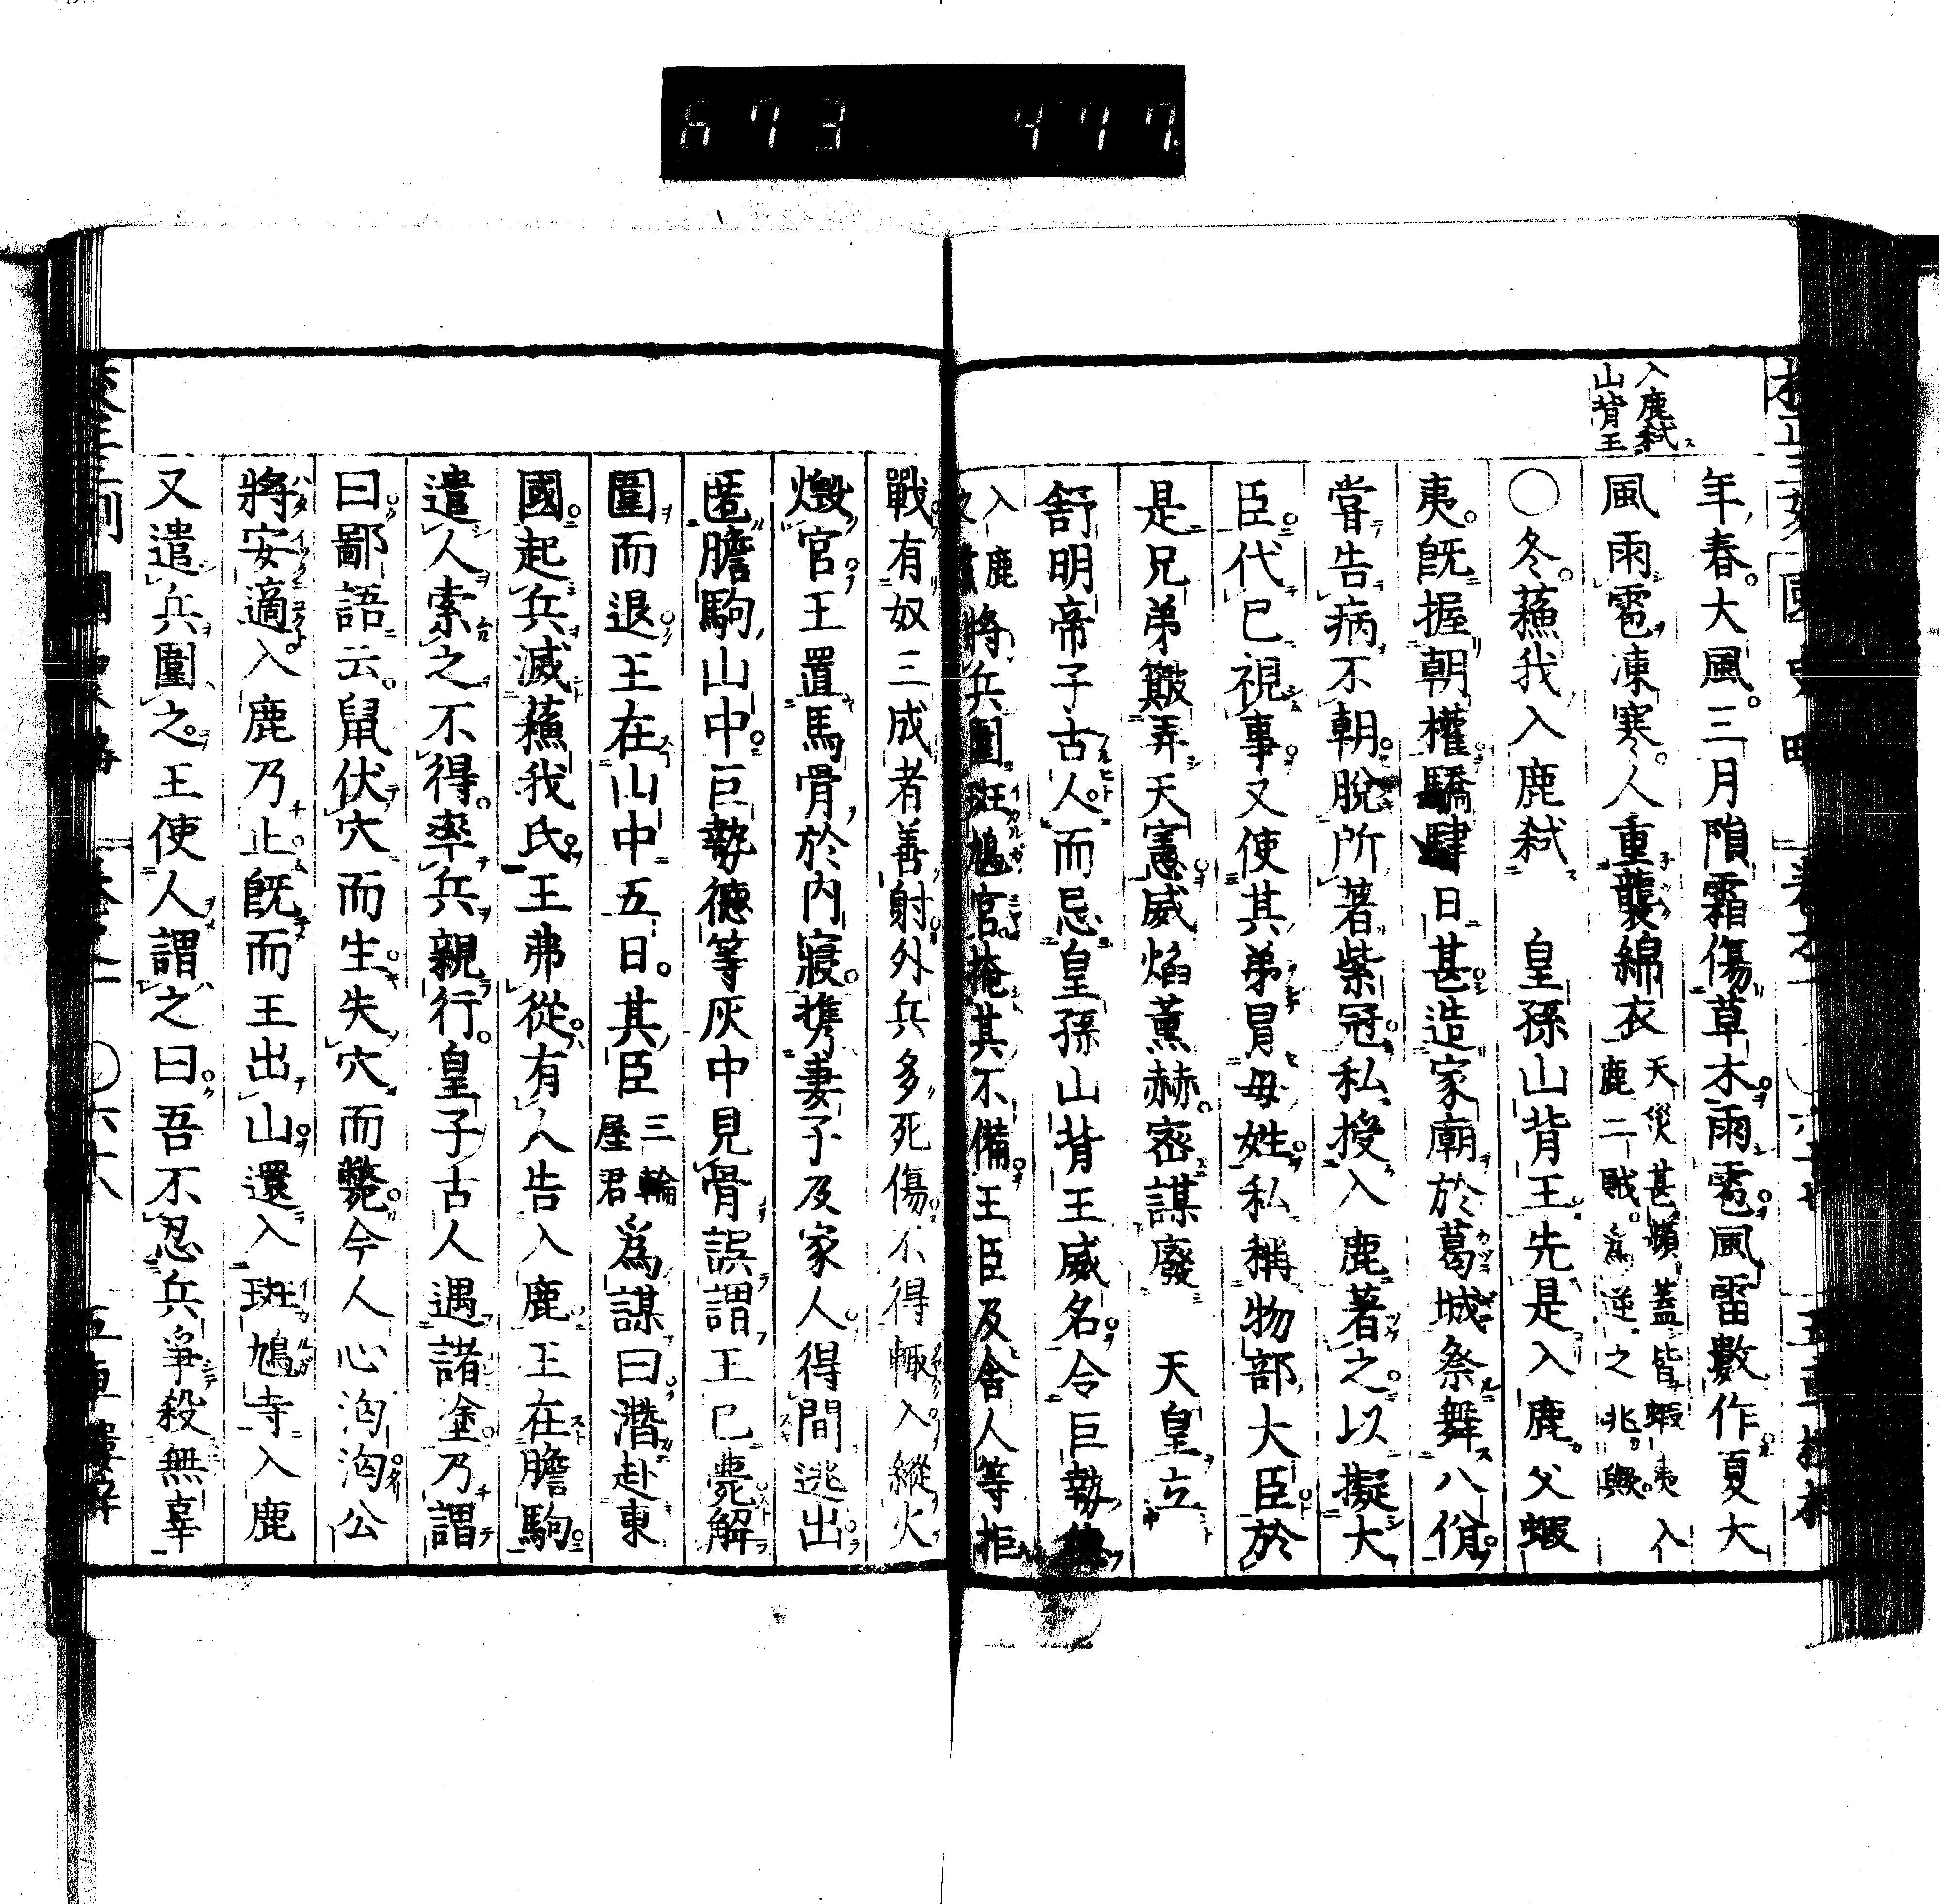 673 477
入鹿弑
山背王
年春大風三月隕霜傷草木雨雹風雷數作夏大
風雨雹凍寒人重襲綿衣天災甚頻蓋皆蝦夷入鹿二賊爲逆之兆歟
○冬蘓我入鹿弑 皇孫山背王先是入鹿父蝦
夷旣握朝權驕肆日甚造家廟於葛城祭舞八佾
嘗告病不朝脫所著紫冠私授入鹿著之以擬大
臣代已視事又使其弟冐母姓私稱物部大臣於
是兄弟簸弄天憲威焰薰赫密謀廢 天皇立
舒明帝子古人而忌皇孫山背王威名令巨勢
入鹿將兵圍斑鳩宮掩其不備王臣及舎人等拒
戰有奴三成者善射外兵多死傷不得輙入縱火
燬官王置馬骨於内寢携妻子及家人得間逃出
匿膽駒山中巨勢德等灰中見骨誤謂王已薨解
圍而退王在山中五日其臣三輪屋君爲謀曰潛赴東
國起兵滅蘓我氏王弗從有人告入鹿王在膽駒
遣人索之不得率兵親行皇子古人遇諸塗乃謂
曰鄙語云鼠伏穴而生失穴而斃今人心洶洶公
將安適入鹿乃止旣而王出山還入斑鳩寺入鹿
又遣兵圍之王使人謂之曰吾不忍兵爭殺無辜